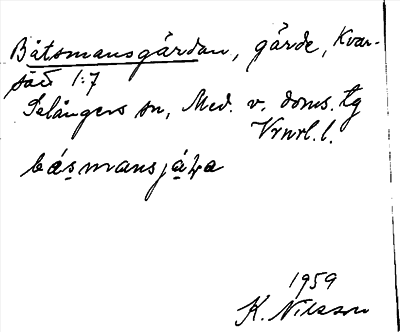 Båtsmansgärdan, gärde, Kvar-
sätt 1:7
Selångers sn, Med. v. doms. tg
Vrnrl. l.
básmansjäɫa
1959
K. Nilsson